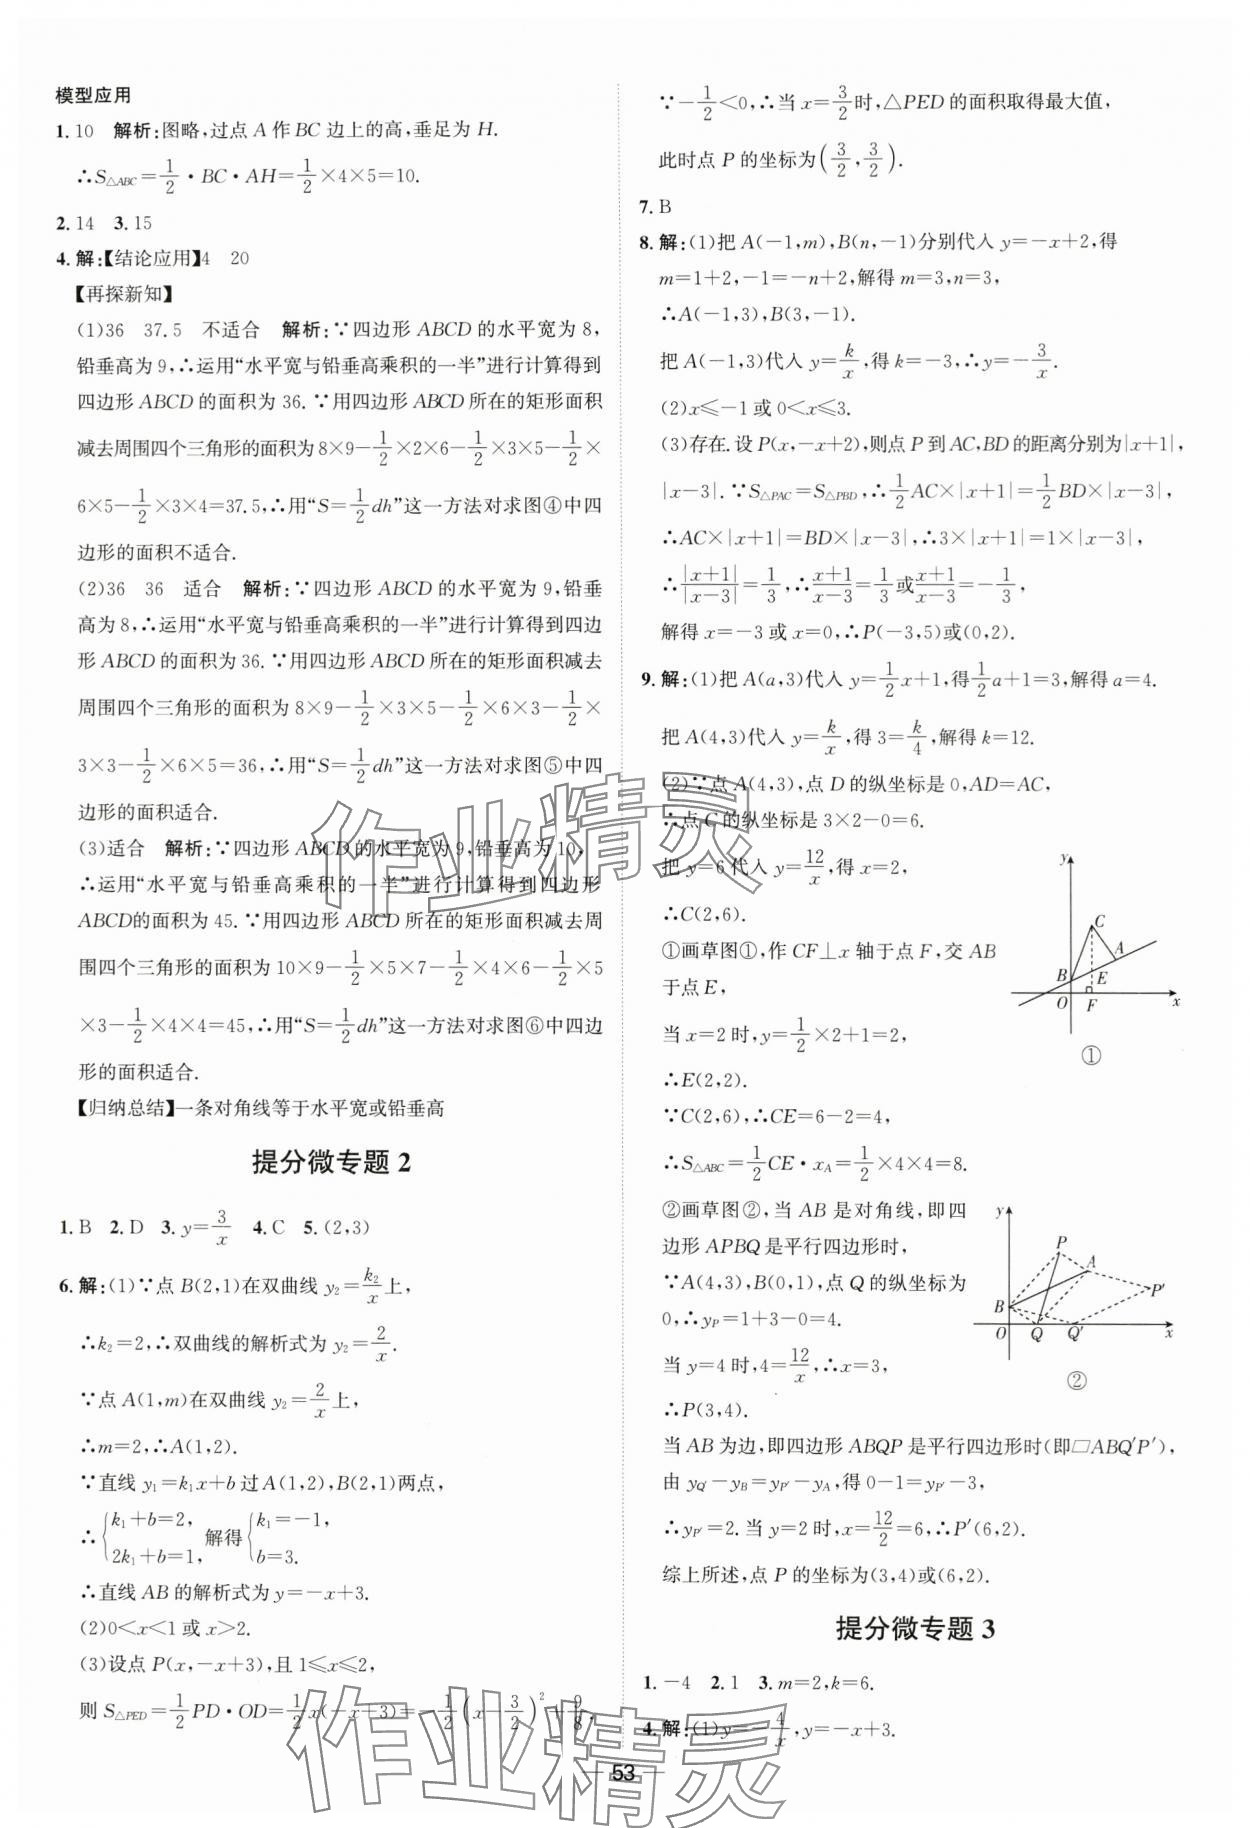 模型应用
1. 10　解析:图略,过点 A 作 BC 边上的高,垂足为 H.
∴S△ABC=1/2·BC·AH=1/2×4×5=10.
2. 14　3. 15
4. 解:【结论应用】4　20
【再探新知】
(1)36　37.5　不适合　解析:∵四边形 ABCD 的水平宽为 8,
铅垂高为 9,∴运用“水平宽与铅垂高乘积的一半”进行计算得到
四边形 ABCD 的面积为 36. ∵用四边形 ABCD 所在的矩形面积
减去周围四个三角形的面积为 8×9-1/2×2×6-1/2×3×5-1/2×
6×5-1/2×3×4=37.5,∴用“S=1/2dh”这一方法对求图④中四
边形的面积不适合.
(2)36　36　适合　解析:∵四边形 ABCD 的水平宽为 9,铅垂
高为 8,∴运用“水平宽与铅垂高乘积的一半”进行计算得到四边
形 ABCD 的面积为 36. ∵用四边形 ABCD 所在的矩形面积减去
周围四个三角形的面积为 8×9-1/2×3×5-1/2×6×3-1/2×
3×3-1/2×6×5=36,∴用“S=1/2dh”这一方法对求图⑤中四
边形的面积适合.
(3)适合　解析:∵四边形 ABCD 的水平宽为 9,铅垂高为 10,
∴运用“水平宽与铅垂高乘积的一半”进行计算得到四边形
ABCD的面积为 45. ∵用四边形 ABCD 所在的矩形面积减去周
围四个三角形的面积为 10×9-1/2×5×7-1/2×4×6-1/2×5
×3-1/2×4×4=45,∴用“S=1/2dh”这一方法对求图⑥中四边
形的面积适合.
【归纳总结】一条对角线等于水平宽或铅垂高
提分微专题 2
1. B　2. D　3. y=3/x　4. C　5. (2,3)
6. 解:(1)∵点 B(2,1)在双曲线 y₂=k₂/x上,
∴k₂=2,∴双曲线的解析式为 y₂=2/x.
∵点 A(1,m)在双曲线 y₂=2/x上,
∴m=2,∴A(1,2).
∵直线 y₁=k₁x+b 过 A(1,2),B(2,1)两点,
∴{k₁+b=2, 2k₁+b=1, 解得{k₁=-1, b=3.
∴直线 AB 的解析式为 y=-x+3.
(2)0<x<1 或 x>2.
(3)设点 P(x,-x+3),且 1≤x≤2,
则 S△PED=1/2PD·OD=1/2x(-x+3)=-1/2(x-3/2)²+9/8.
∵-1/2<0,∴当 x=3/2时,△PED 的面积取得最大值,
此时点 P 的坐标为(3/2,3/2).
7. B
8. 解:(1)把 A(-1,m),B(n,-1)分别代入 y=-x+2,得
m=1+2,-1=-n+2,解得 m=3,n=3,
∴A(-1,3),B(3,-1).
把 A(-1,3)代入 y=k/x,得 k=-3,∴y=-3/x.
(2)x≤-1 或 0<x≤3.
(3)存在. 设 P(x,-x+2),则点 P 到 AC,BD 的距离分别为|x+1|,
|x-3|. ∵S△PAC=S△PBD,∴1/2AC×|x+1|=1/2BD×|x-3|,
∴AC×|x+1|=BD×|x-3|,∴3×|x+1|=1×|x-3|,
∴|x+1|/|x-3|=1/3,∴x+1/x-3=1/3或x+1/x-3=-1/3,
解得 x=-3 或 x=0,∴P(-3,5)或(0,2).
9. 解:(1)把 A(a,3)代入 y=1/2x+1,得1/2a+1=3,解得 a=4.
把 A(4,3)代入 y=k/x,得 3=k/4,解得 k=12.
(2)∵点 A(4,3),点 D 的纵坐标是 0,AD=AC,
∴点 C 的纵坐标是 3×2-0=6.
把 y=6 代入 y=12/x,得 x=2,
∴C(2,6).
①画草图①,作 CF⊥x 轴于点 F,交 AB
于点 E,
当 x=2 时,y=1/2×2+1=2,
∴E(2,2).
∵C(2,6),∴CE=6-2=4,
∴S△ABC=1/2CE·xA=1/2×4×4=8.
y C A B E O F x
①
②画草图②,当 AB 是对角线,即四
边形 APBQ 是平行四边形时,
∵A(4,3),B(0,1),点 Q 的纵坐标为
0,∴yP=1+3-0=4.
当 y=4 时,4=12/x,∴x=3,
∴P(3,4).
y P A P′ B O Q Q′ x
②
当 AB 为边,即四边形 ABQP 是平行四边形时(即▱ABQ′P′),
由 yQ′-yB=yP′-yA,得 0-1=yP′-3,
∴yP′=2. 当 y=2 时,x=12/2=6,∴P′(6,2).
综上所述,点 P 的坐标为(3,4)或(6,2).
提分微专题 3
1. -4　2. 1　3. m=2,k=6.
4. 解:(1)y=-4/x,y=-x+3.
53
作业精灵
作业精灵